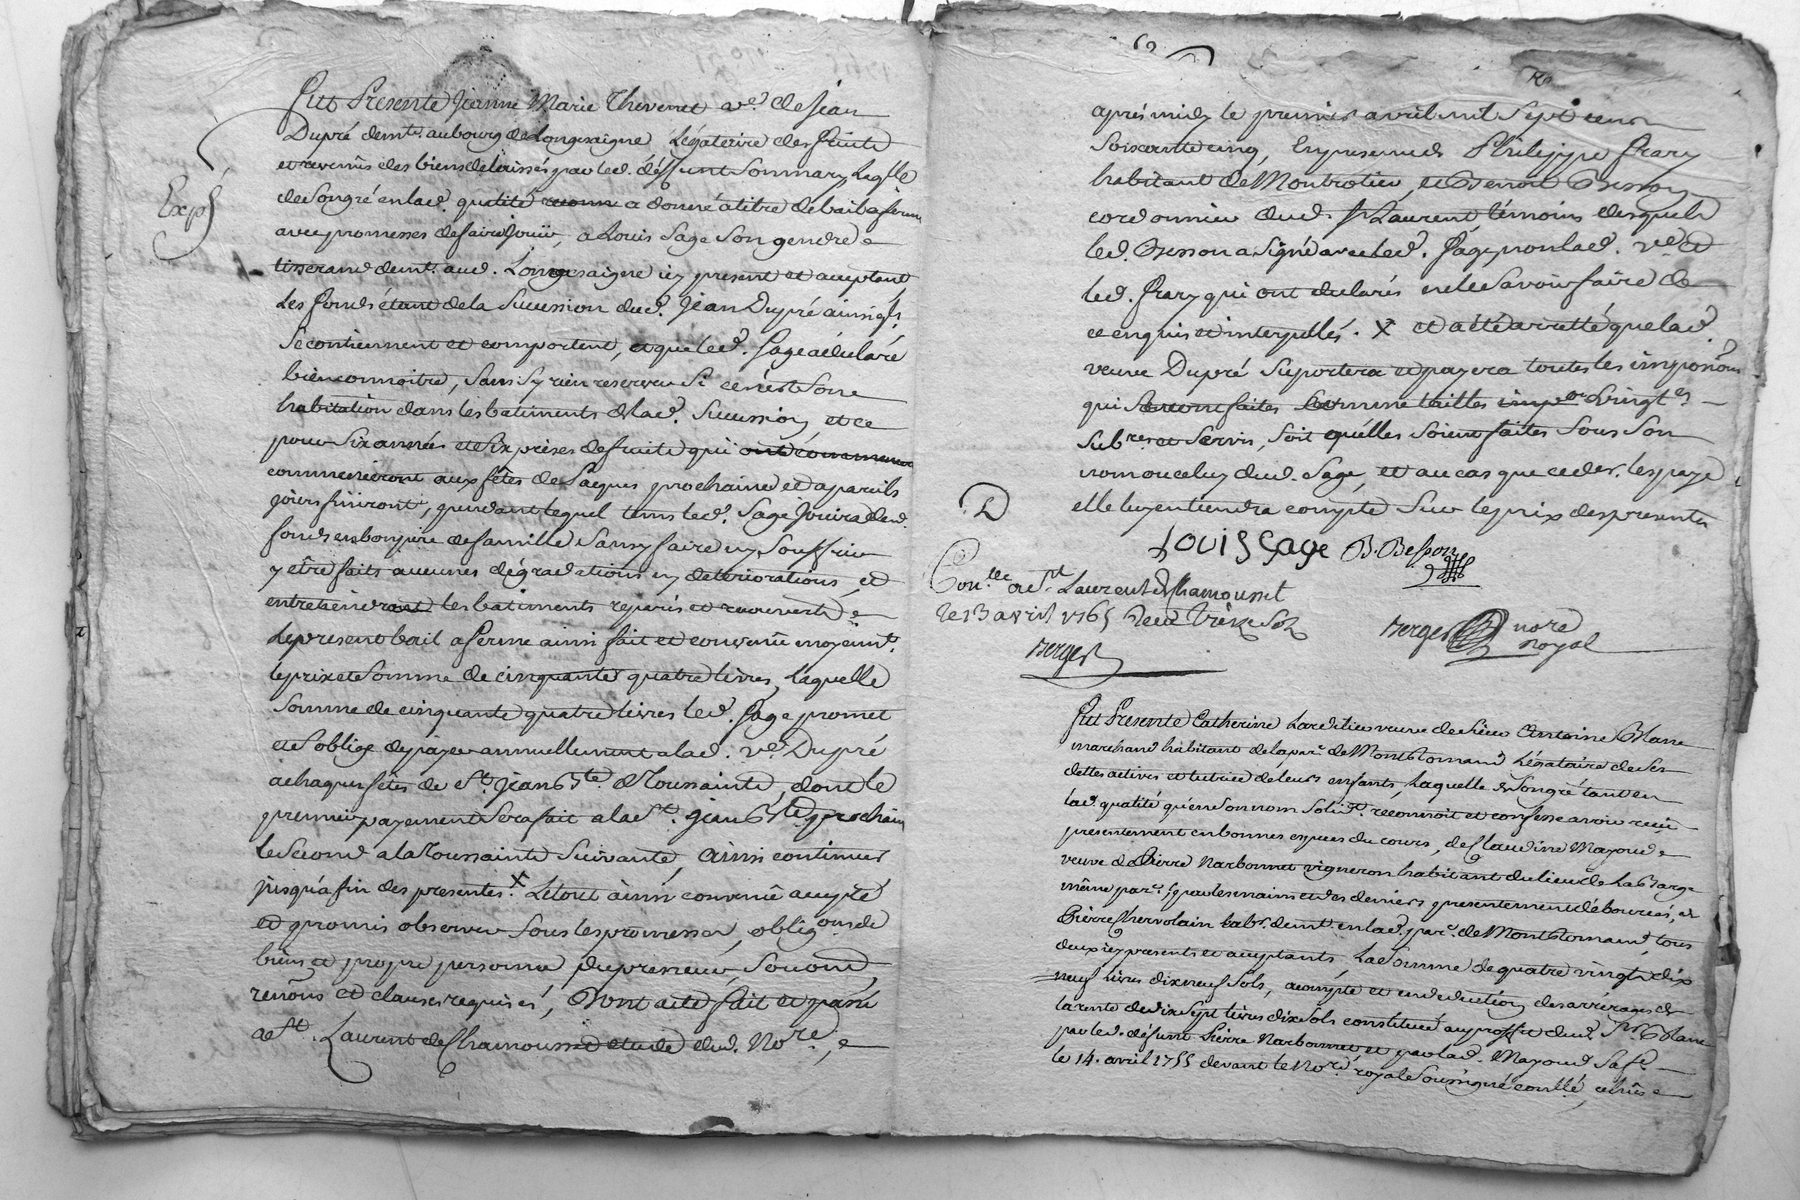 Fut Presente Jeanne Marie Thevenet v.e de Jean
Dupré demt. au bourg de Longesaigne Légaterire des fruits
et revenus des biens delaissés par led. déffunt Sommary Laq.lle
Exp.
de Son gré en lad. qualité a donné a titre de bail a ferme
avec promesses de faire Jouir, a Louis Sage Son gendre
tisserand demt. aud. Longesaigne icy present et acceptant
Les fonds étant de la Succession dud. Jean Dupré ainsi qls.
Se contiennent et comportent, et que led. Sage a déclaré
bien connoitre, Sans y rien reserver Si ce n'est Son
habitation dans les batiments de lad. Succession, et ce
pour Six années et Six prises de fruits qui ont commencé
commenceront aux fêtes de Paques prochaines et a pareils
jours finiront, pendant lequel tems led. Sage Jouira desd.
fonds en bon pere de famille Sans y faire ny Souffrir
y être faits aucunes dégradations ny deteriorations, et
entretiendra les batiments reparés et recouverts
Le present bail a ferme ainsi fait et convenu moyennt.
le prix et Somme de cinquante quatre livres, Laquelle
Somme de cinquante quatre livres led. Sage promet
et S'oblige de payer annuellement a lad. v.e Dupré
a chaques fêtes de St. Jean Bte. & Toussainte, dont le
premier payement Sera fait a la St. Jean Bte. prochain
le Second a la Toussainte Suivante, ainsi continuer
jusqu'a fin des presentes. X Le tout ainsi convenu accepté
et promis observer Sous les promesses, obligons de
biens et propre personne du preneur, Soumons
renons et clauses requises, Dont acte fait et passé
a St. Laurent de Chamousset etude dud. Nore,
après midy le premier avril mil Sept cent
Soixante cinq, En presence de Philippe Frary
habitant de Montrotier, et Benoit Besson
cordonnier dud. St Laurent témoins desquels
led. Besson a Signé avec led. Sage, non lad. ve. et
led. Frary qui ont declarés ne le Savoir faire de
ce enquis et interpellés. X et a été arretté que lad.
veuve Dupré Suportera et payera toutes les impons
qui Seront faites comme tailles vingt.es
Subres et Servis, Soit qu'elles Soient faites Sous Son
nom ou celuy dud. Sage, et au cas que ce der. les paye
D
elle luy en tiendra compte Sur le prix des presentes
Louis Sage B. Besson
Con.lée a St Laurent de Chamousset
le 13 avril 1765 Reçu treize Sols
Berger
Berger nore
royal
Fut Presente Catherine Lardilier veuve de Sieur Antoine Blanc
marchand habitant de la par. de Montromand Légataire de Ses
dettes actives et tutrice de leurs enfants, Laquelle de Son gré tant en
lad. qualité qu'en Son nom Solid. reconnoit et confesse avoir reçu
presentement en bonnes especes du cours, de Claudine Mayoud
veuve de Pierre Narbonnet vigneron habitant du lieu de La Barge
même par. par les mains et des deniers presentement débourcés, de
Pierre Chervolain Labr. demt. en lad. par. de Montromand, tous
deux icy presents et acceptants, La Somme de quatre vingt dix
neuf livres dix neuf Sols, a compte et en deduction des arrérages de
la rente de dix Sept livres dix Sols constituée au proffit dud. Sr. Blanc
par led. défunt Pierre Narbonnet et par lad. Mayoud Sa fe.
le 14. avril 1755 devant le Nore. royal Soussigné conllé,